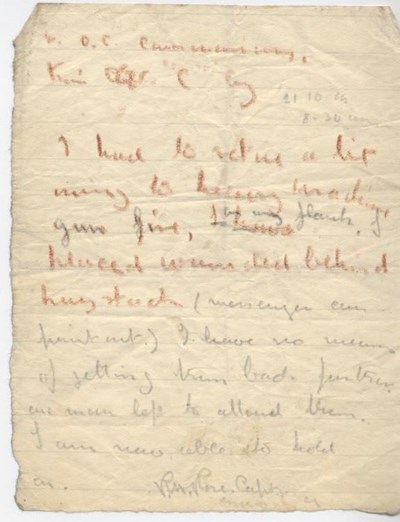 O.C. Commanding,
C Coy
21.10.14
8.30 am
I had to retire a bit
owing to heavy machine
gun fire, on my flank, I
placed wounded behind
haystack (messenger can
point out.) I have no means
of getting them back further.
one man left to attend them.
I am now able to hold
on.
Rose. Capt.